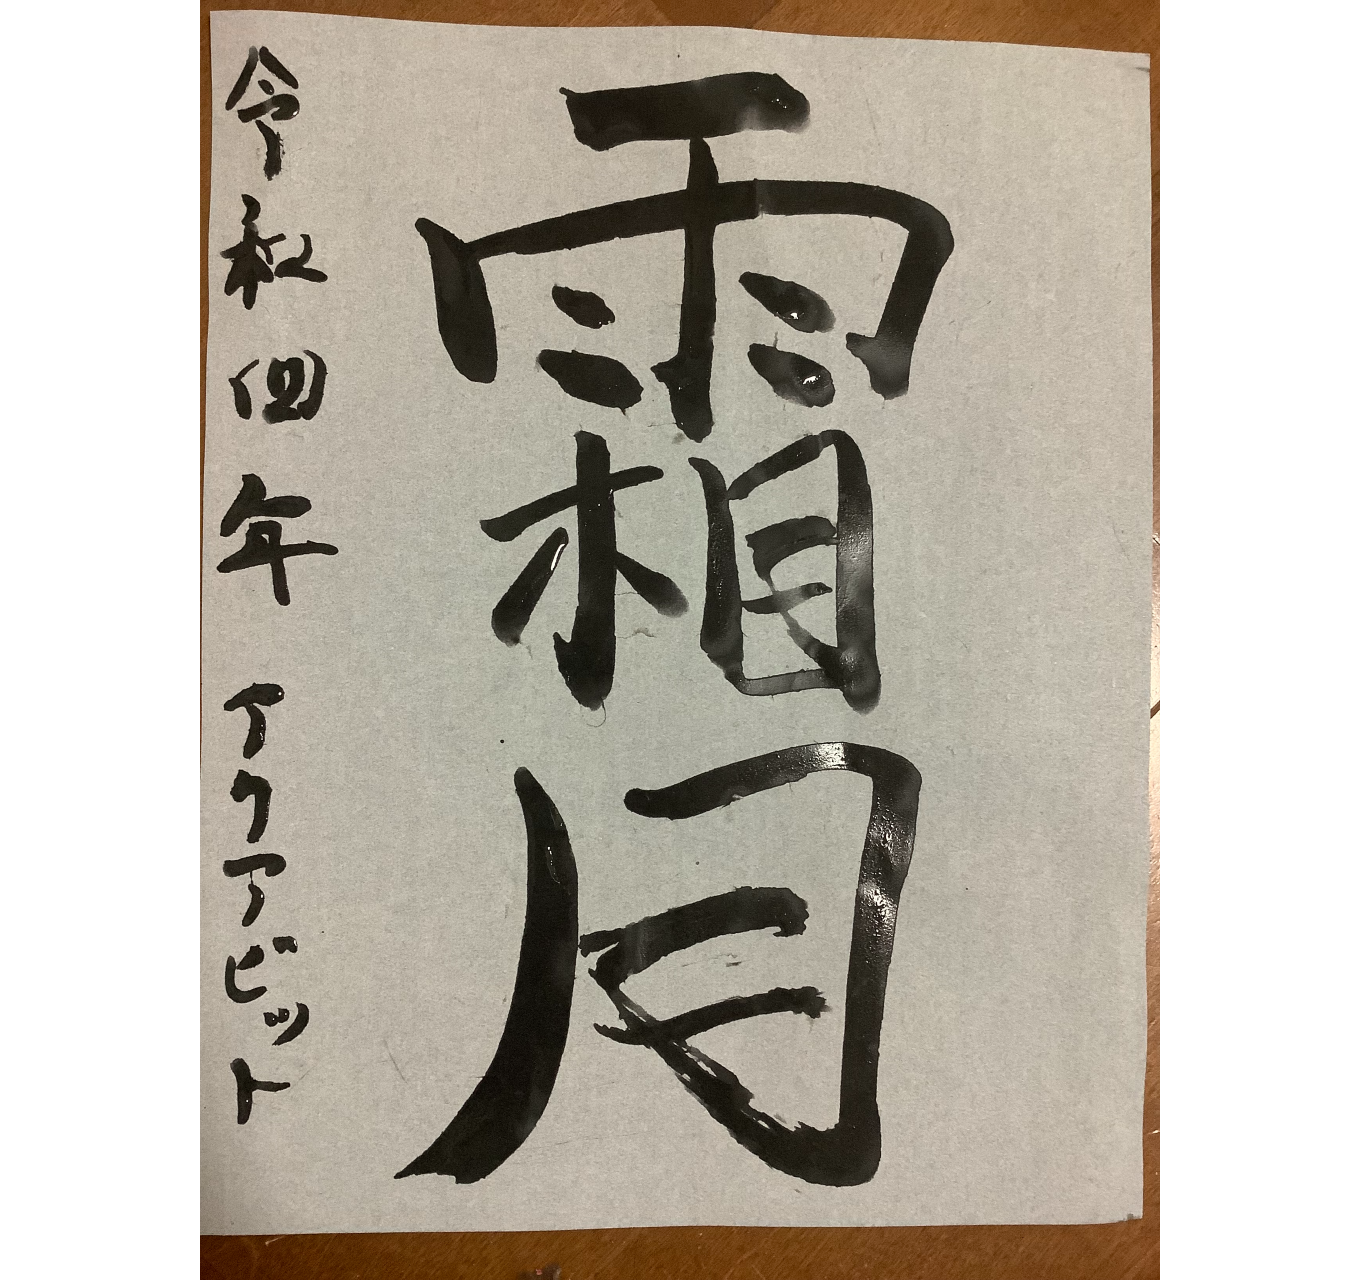 霜月
令和四年 アクアビット